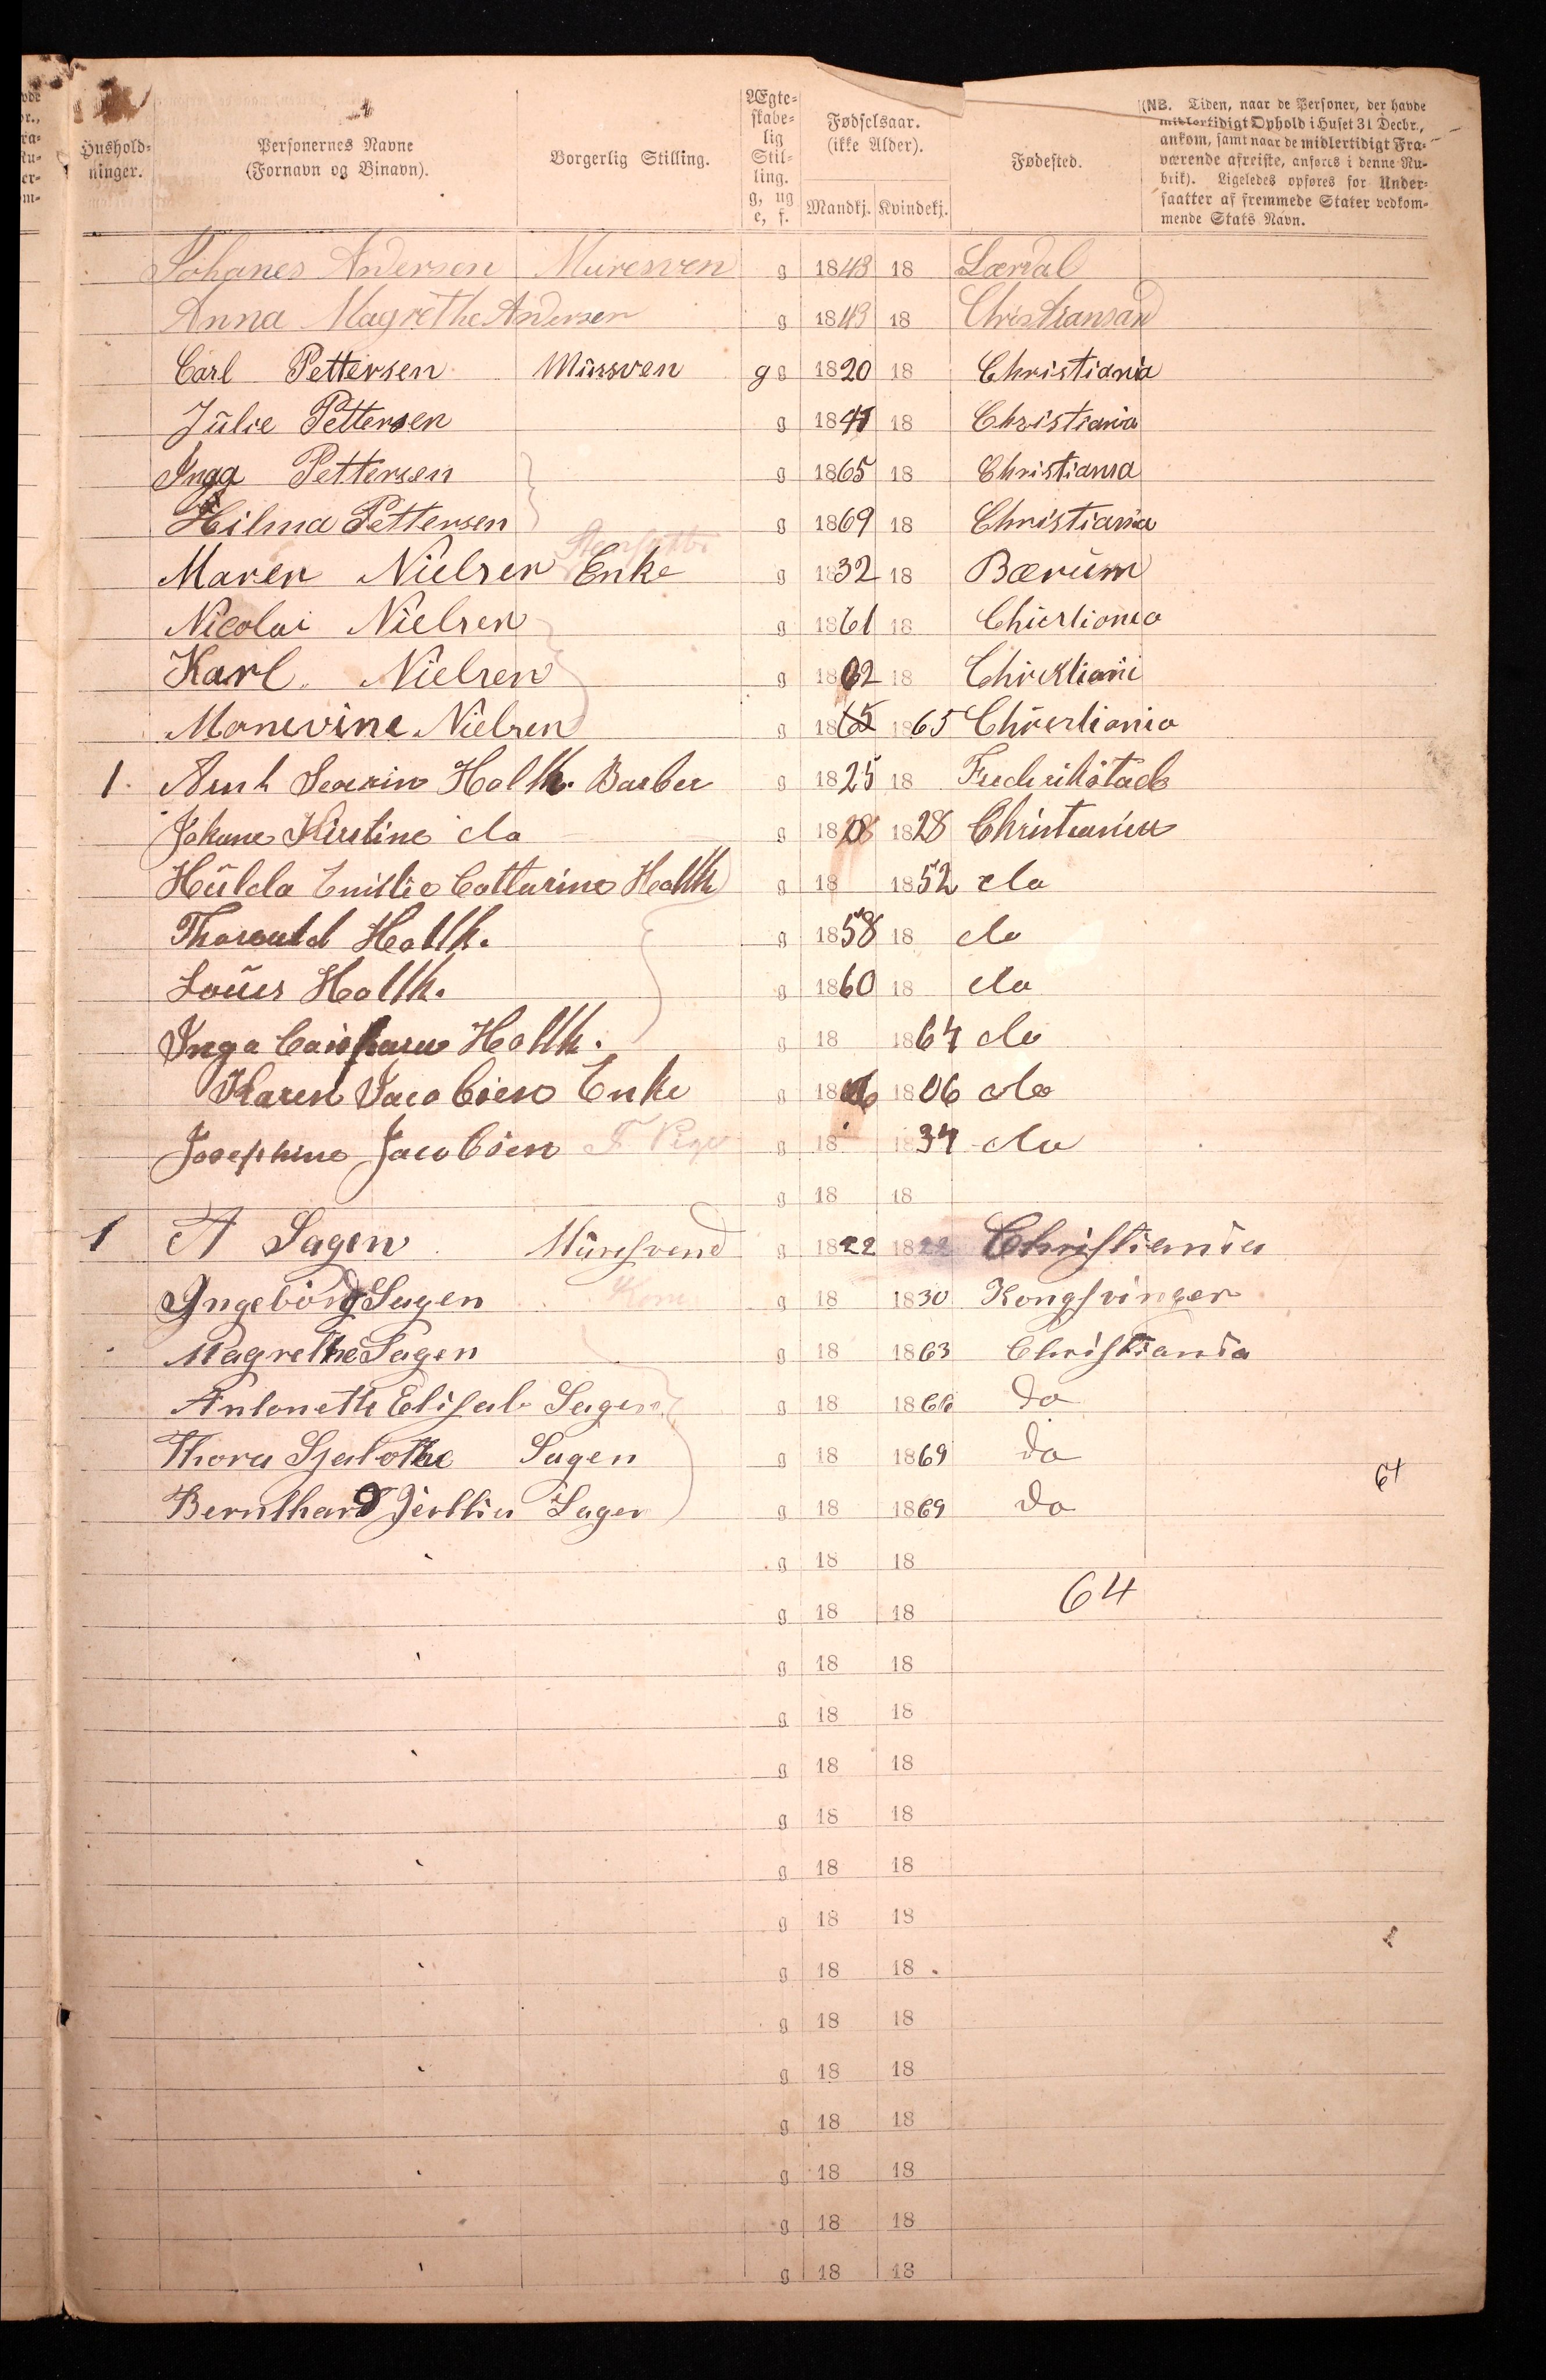 Hushold-
ninger.
Personernes Navne
(Fornavn og Binavn).
Borgerlig Stilling.
Ægte-
skabe-
lig
Stil-
ling.
g, ug
e, f.
Fødselsaar.
(ikke Alder).
Mandkj. Kvindekj.
Fødested.
(NB. Tiden, naar de Personer, der havde
midlertidigt Ophold i Huset 31 Decbr.,
ankom, samt naar de midlertidigt Fra-
værende afreiste, anføres i denne Ru-
brik). Ligeledes opføres for Under-
saatter af fremmede Stater vedkom-
mende Stats Navn.
Johanes Andersen Muresven g 1843 18 Lærdal
Anna Magrethe Andersen g 1843 18 Christiansand
Carl Pettersen Mürsven g g 1820 18 Christiania
Jülie Pettersen g 1841 18 Christiania
Inga Pettersen g 1865 18 Christiania
Hilma Pettersen g 1869 18 Christiania
Maren Nielsen Enke g 1832 18 Bærüm
Nicolai Nielsen g 1861 18 Chirstiania
Karl Nielsen g 1862 18 Chirstiani
Monevine Nielsen g 1865 1865 Chirstiania
1. Arnt Severin Holth. Barber g 1825 18 Fredrikstad
Johane Kirstine do g 1828 1828 Christiania
Hülda Emilie Catharine Holth g 18 1852 do
Thorvald Holth. g 1858 18 do
Loüis Holth. g 1860 18 do
Inga Holth. g 18 1864 do
Karen Jacobsen Enke g 1806 1806 do
Josephine Jacobsen F. Pige g 18 1834 do
g 18 18
1 A Sagen Müresvend g 1822 1822 Christiania
Ingeborg Sagen Kone g 18 1830 Kongsvinger
Magrethe Sagen g 18 1863 Christiania
Antonette Elisab Sagen g 18 1866 do
Thora Sjalothe Sagen g 18 1869 do
64
Bernthard Sagen g 18 1869 do
g 18 18
64
g 18 18
g 18 18
g 18 18
g 18 18
g 18 18
g 18 18
g 18 18
g 18 18
g 18 18
g 18 18
g 18 18
g 18 18
g 18 18
g 18 18